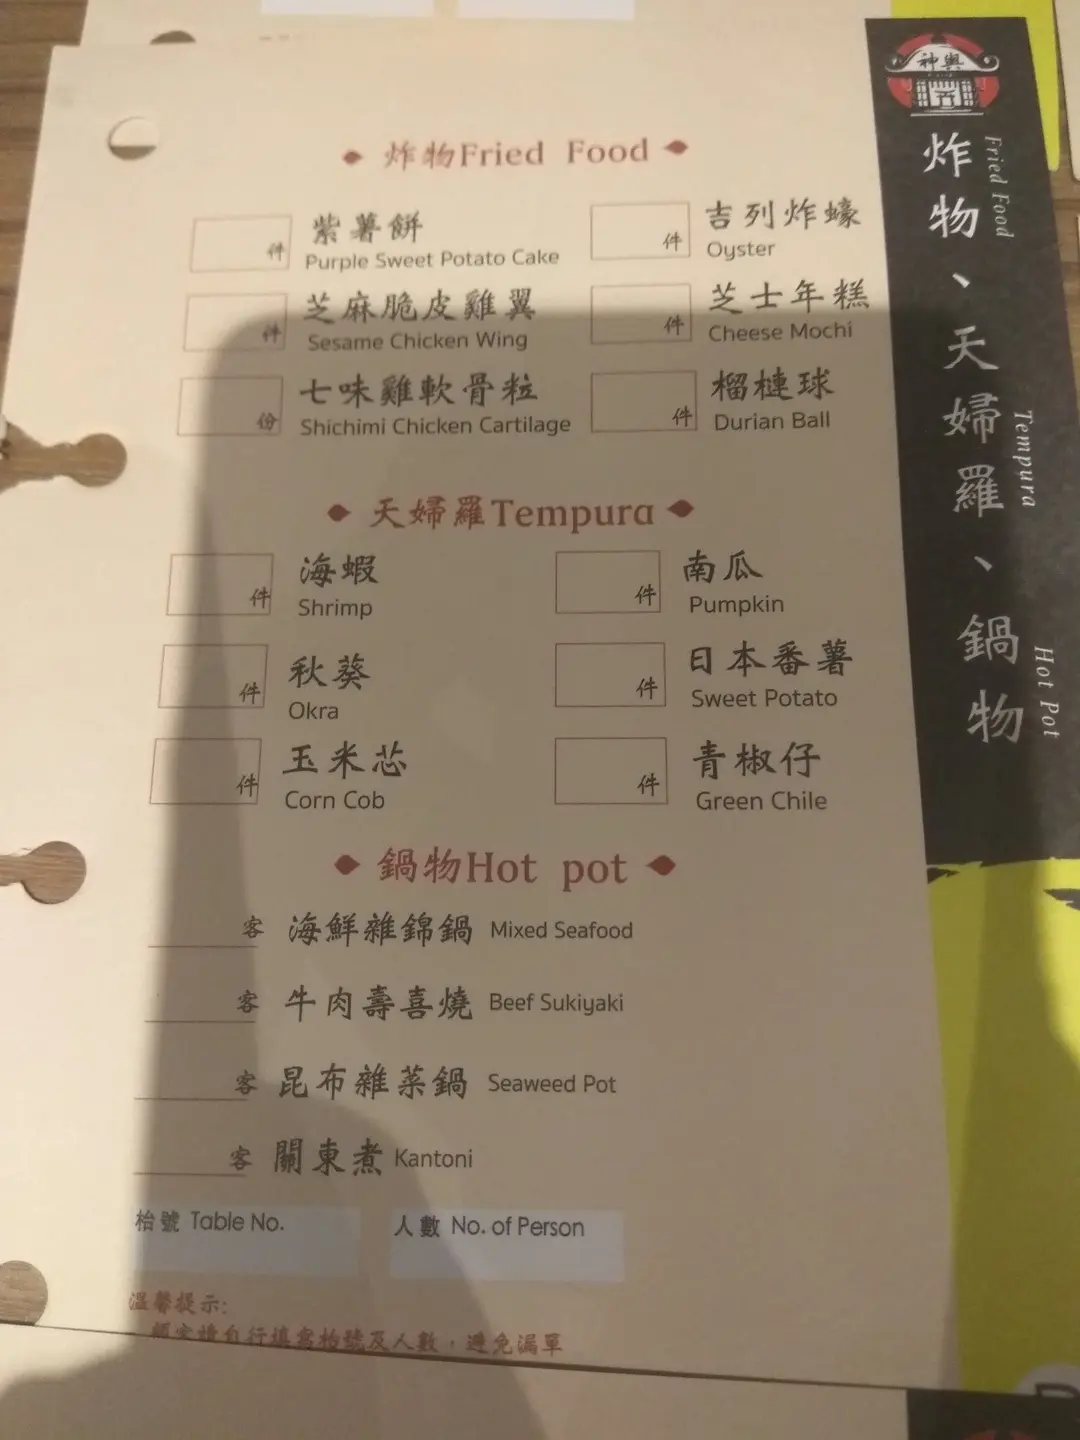 神輿
炸物Fried Food
件 紫薯餅
Purple Sweet Potato Cake
件 吉列炸蠔
Oyster
件 芝麻脆皮雞翼
Sesame Chicken Wing
件 芝士年糕
Cheese Mochi
份 七味雞軟骨粒
Shichimi Chicken Cartilage
件 榴槤球
Durian Ball
天婦羅Tempura
件 海蝦
Shrimp
件 南瓜
Pumpkin
件 秋葵
Okra
件 日本番薯
Sweet Potato
件 玉米芯
Corn Cob
件 青椒仔
Green Chile
鍋物Hot pot
客 海鮮雜錦鍋 Mixed Seafood
客 牛肉壽喜燒 Beef Sukiyaki
客 昆布雜菜鍋 Seaweed Pot
客 關東煮 Kantoni
枱號 Table No.
人數 No. of Person
溫馨提示:
自行填寫枱號及人數，避免漏單
炸物、天婦羅、鍋物
Fried Food
Tempura
Hot Pot